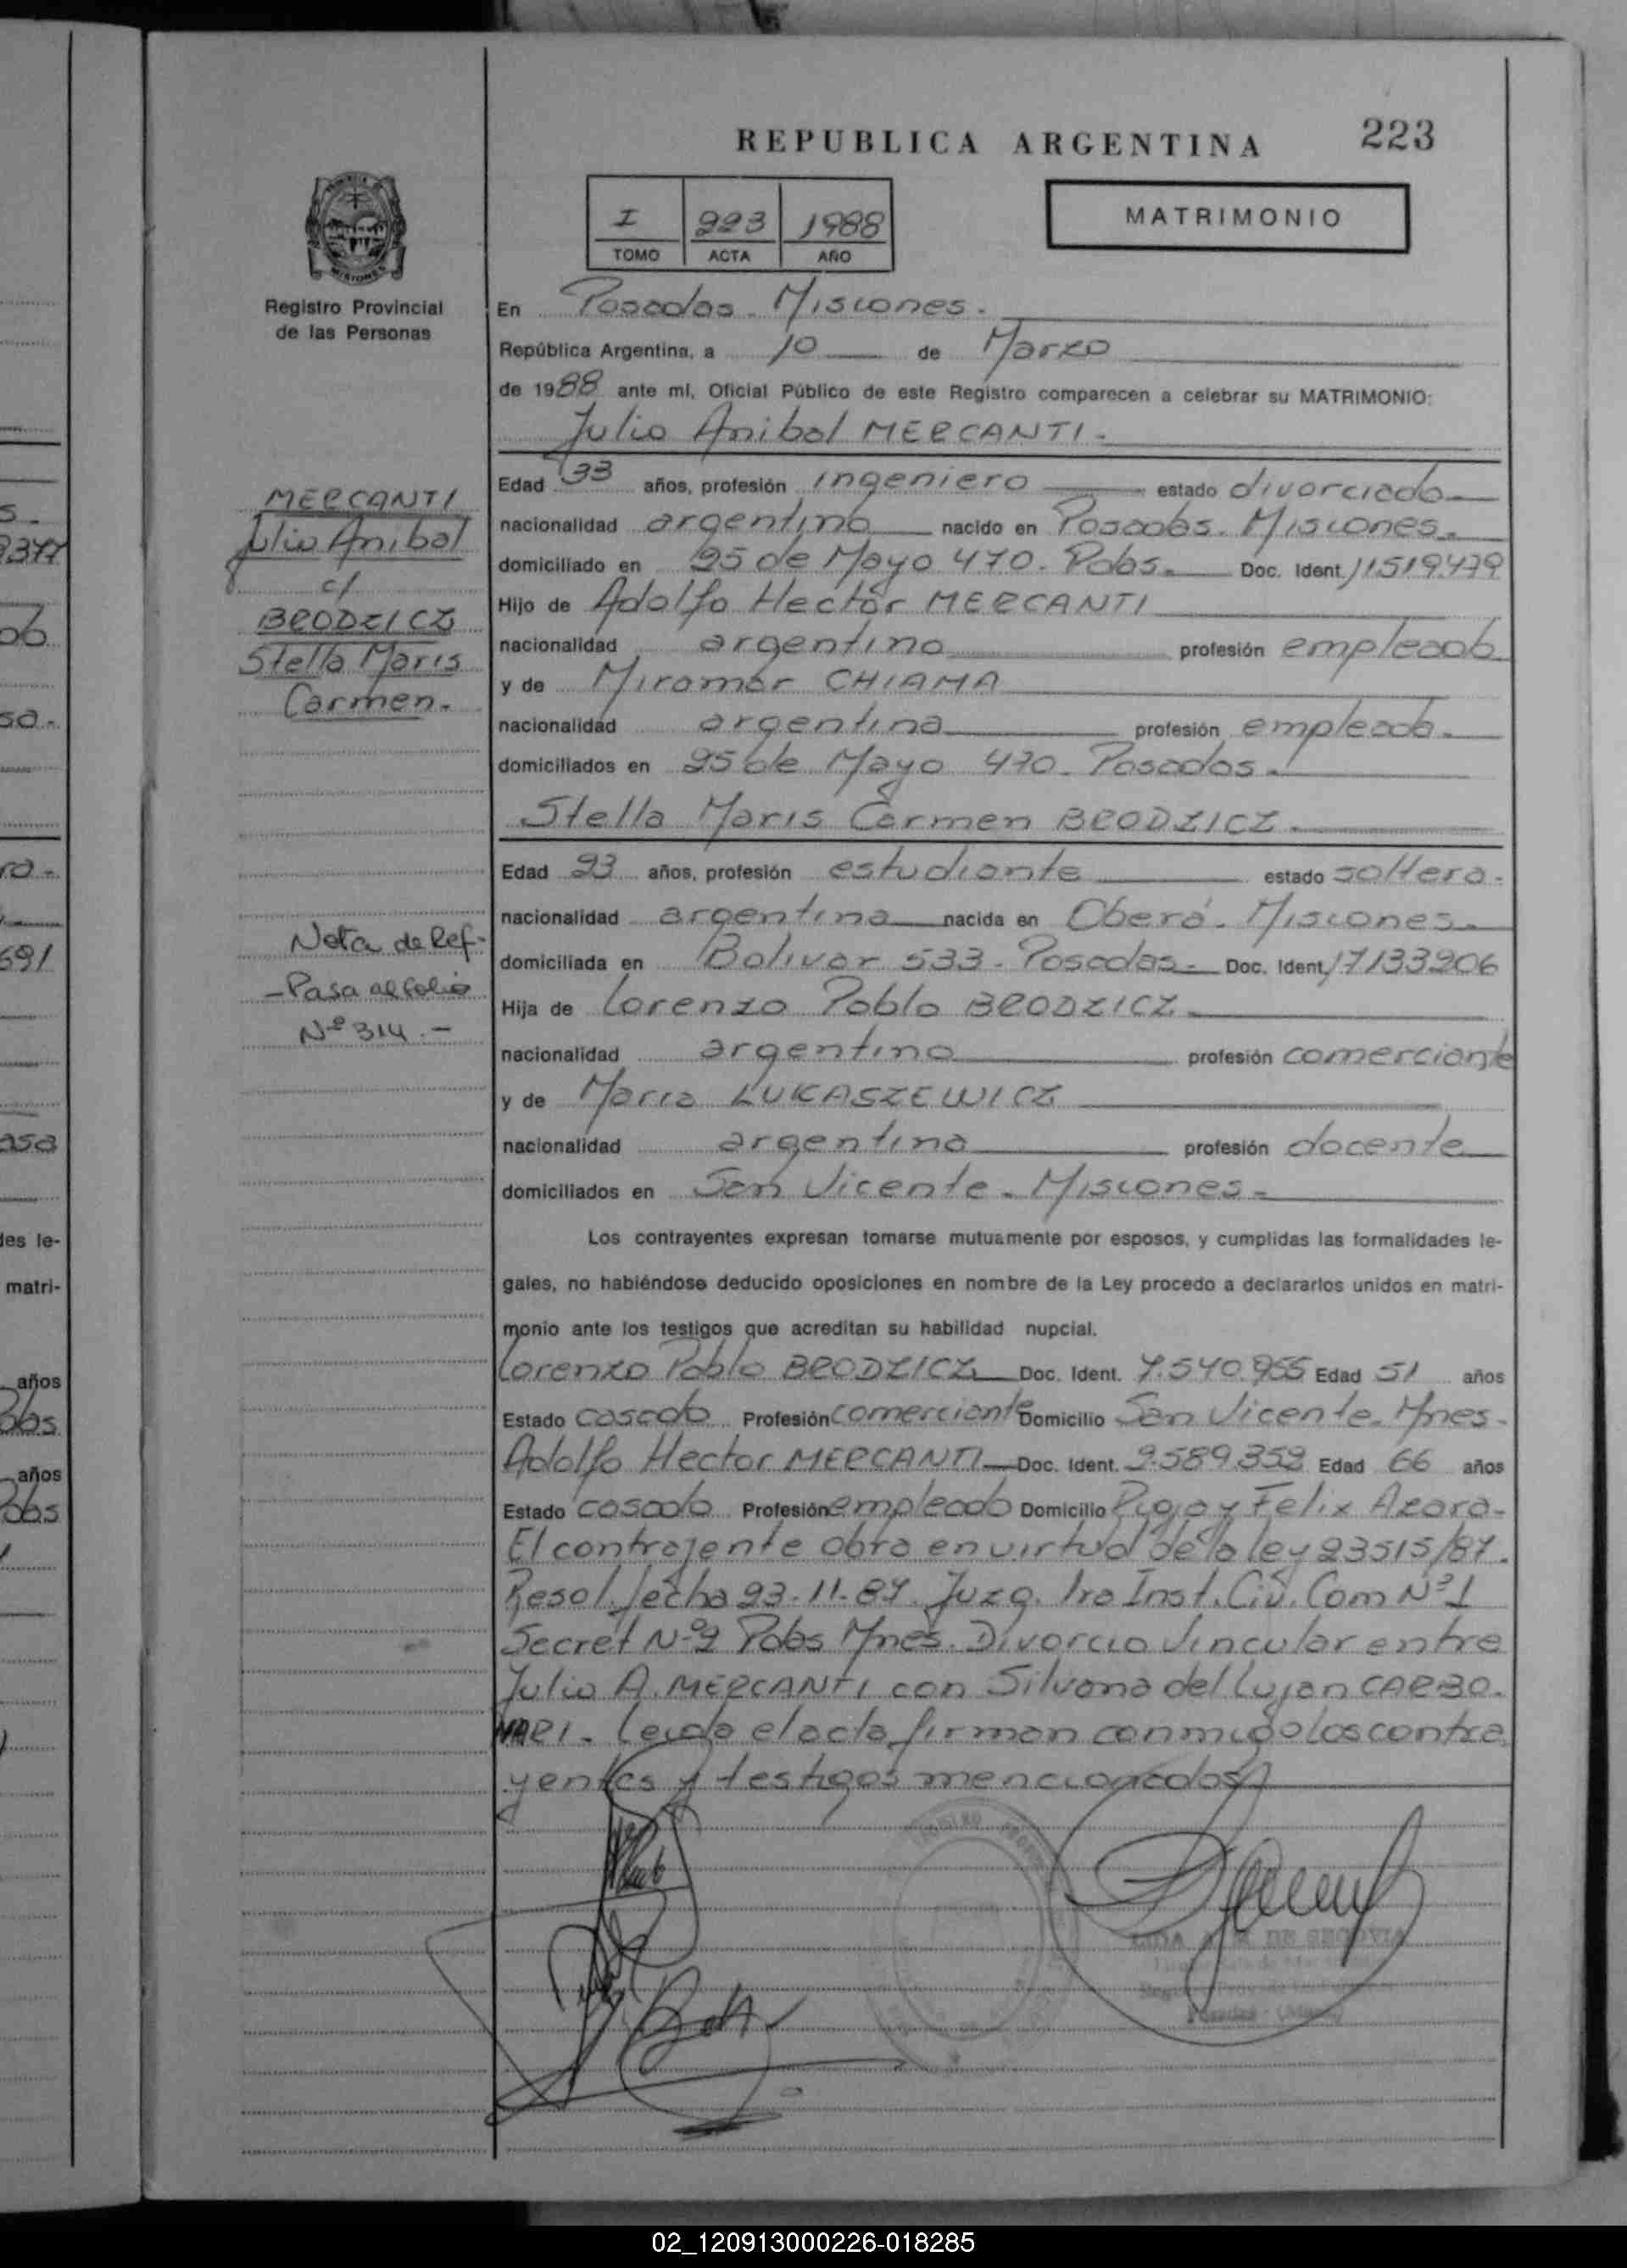 REPUBLICA ARGENTINA 223
I 223 1988
TOMO ACTA AÑO
MATRIMONIO
MISIONES
Registro Provincial
de las Personas
En Posadas. Misiones.
República Argentina, a 10 de Marzo
de 1988 ante mí, Oficial Público de este Registro comparecen a celebrar su MATRIMONIO:
Julio Anibal MERCANTI.
Edad 33 años, profesión ingeniero estado divorciado
nacionalidad argentina nacido en Posadas. Misiones.
domiciliado en 25 de Mayo 470. Pdas. Doc. Ident. 11519479
Hijo de Adolfo Hector MERCANTI
nacionalidad argentino profesión empleado
y de Miramar CHIAMA
nacionalidad argentina profesión empleada.
domiciliados en 25 de Mayo 470. Posadas.
Stella Maris Carmen BRODZICZ.
Edad 23 años, profesión estudiante estado soltera.
nacionalidad argentina nacida en Oberá. Misiones.
domiciliada en Bolivar 533. Posadas. Doc. Ident. 17133206
Hija de Lorenzo Pablo BRODZICZ.
nacionalidad argentino profesión comerciante
y de Maria LUKASZEWICZ
nacionalidad argentina profesión docente
domiciliados en San Vicente. Misiones.
Los contrayentes expresan tomarse mutuamente por esposos, y cumplidas las formalidades le-
gales, no habiéndose deducido oposiciones en nombre de la Ley procedo a declararlos unidos en matri-
monio ante los testigos que acreditan su habilidad nupcial.
Lorenzo Pablo BRODZICZ Doc. Ident. 7.540.955 Edad 51 años
Estado casado Profesión comerciante Domicilio San Vicente. Mnes.
Adolfo Hector MERCANTI Doc. Ident. 2.589.352 Edad 66 años
Estado casado Profesión empleado Domicilio Rioja y Felix Azara.
El contrajente obra en virtud de la ley 23515/87.
Resol. fecha 23.11.87. Juzg. 1ra Inst. Civ. Com Nº 1
Secret Nº 2 Pdas Mnes. Divorcio Vincular entre
Julio A. MERCANTI con Silvana del Lujan CARBO.
NARI. Leida el acta firman conmigo los contra
yentes y testigos mencionados
MERCANTI
Julio Anibal
c/
BRODZICZ
Stella Maris
Carmen.
Nota de Ref-
-Pasa al folio
Nº 314.-
DE SEGOVIA
Posadas
s.
9377
do
sa.
ra.
691
asa
les le-
matri-
años
Pdas
años
Pdas
02_120913000226-018285